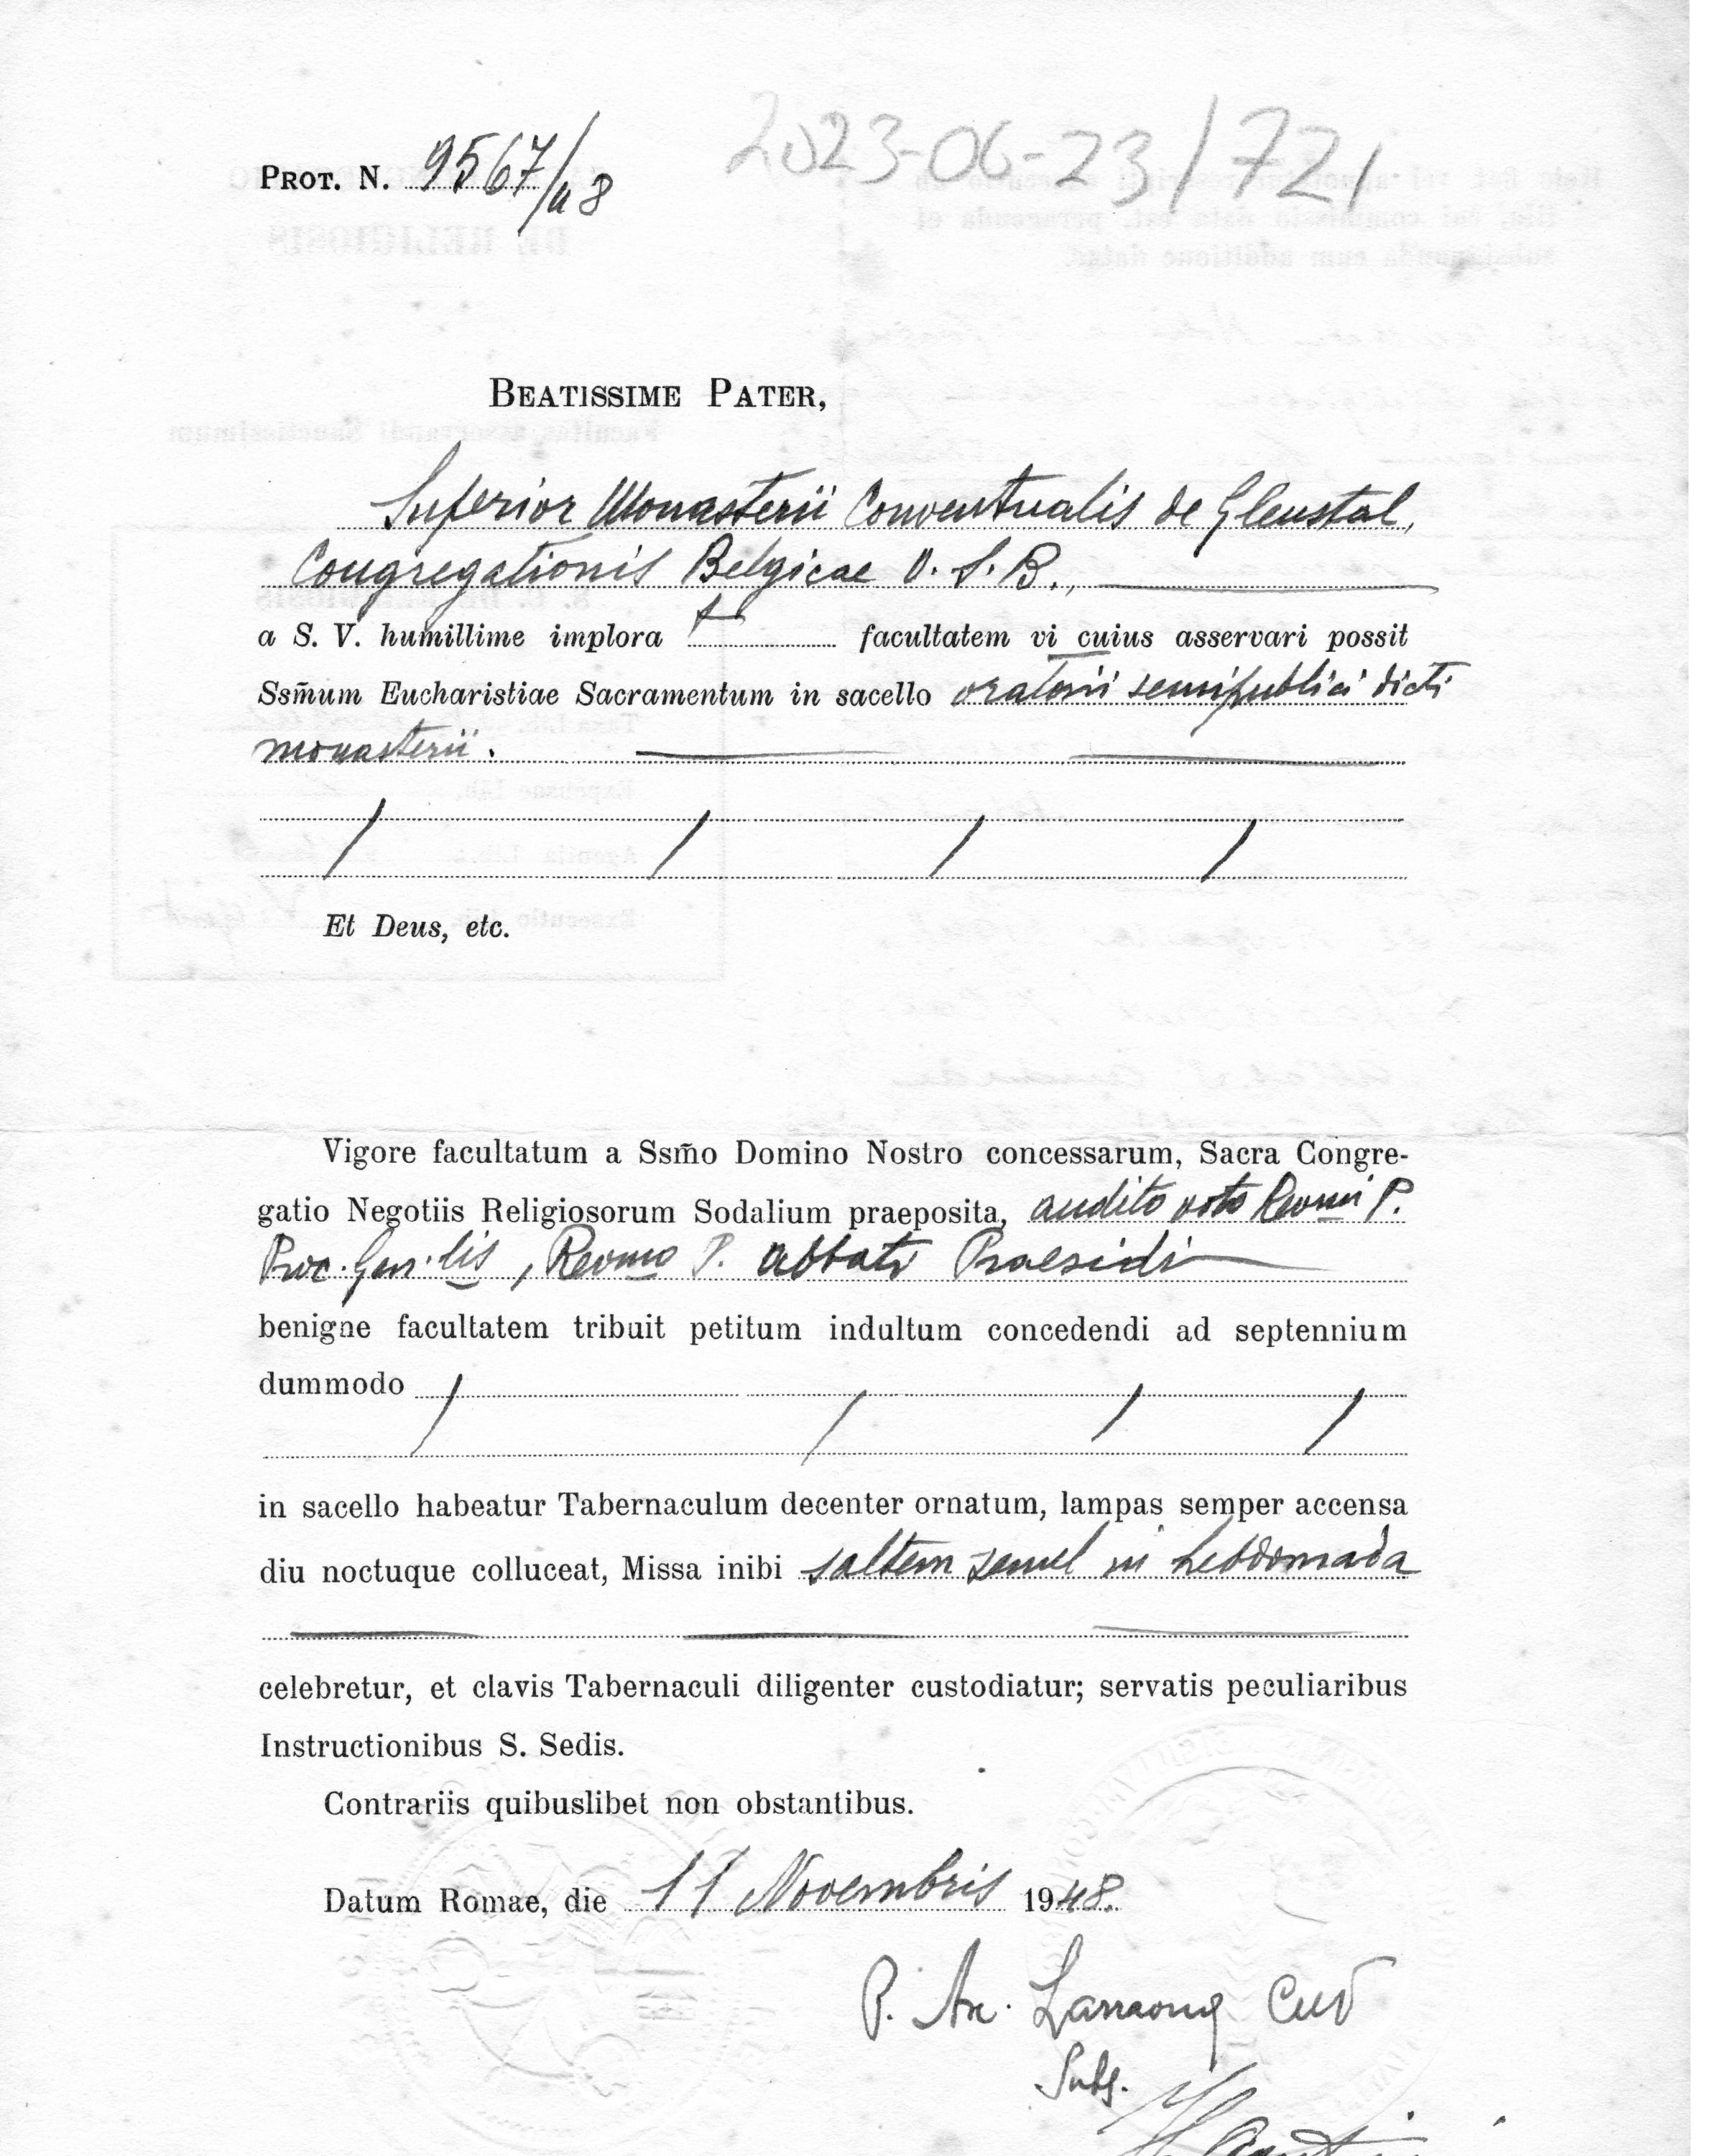 PROT. N. 9567/48
2023-06-23/721
BEATISSIME PATER,
Superior Monasterii Conventualis de Glenstal,
Congregationis Belgicae O. S. B.,
a S. V. humillime implora t facultatem vi cuius asservari possit
Ssm̃um Eucharistiae Sacramentum in sacello oratorii semipublici dicti
monasterii.
Et Deus, etc.
Vigore facultatum a Ssm̃o Domino Nostro concessarum, Sacra Congre-
gatio Negotiis Religiosorum Sodalium praeposita, audito voto Revmi P.
Proc. Gen.lis, Revmo P. Abbati Praesidi
benigne facultatem tribuit petitum indultum concedendi ad septennium
dummodo
in sacello habeatur Tabernaculum decenter ornatum, lampas semper accensa
diu noctuque colluceat, Missa inibi saltem semel in hebdomada
celebretur, et clavis Tabernaculi diligenter custodiatur; servatis peculiaribus
Instructionibus S. Sedis.
Contrariis quibuslibet non obstantibus.
Datum Romae, die 11 Novembris 1948.
P. Ar. Larraona CMF
Subs.